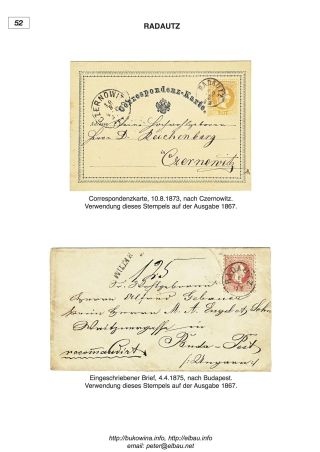 52
RADAUTZ
CZERNOWITZ
RADAUTZ
Correspondenz-Karte.
Herrn D. Reichenberg
Czernowitz
Correspondenzkarte, 10.8.1873, nach Czernowitz.
Verwendung dieses Stempels auf der Ausgabe 1867.
125
Herrn Alfred Gebauer
bein Herrn M. A. Engel & Sohn
Waitznergasse in
Buda-Pest
recommandirt (Ungarn)
Eingeschriebener Brief, 4.4.1875, nach Budapest.
Verwendung dieses Stempels auf der Ausgabe 1867.
http://bukowina.info, http://elbau.info
email: peter@elbau.net